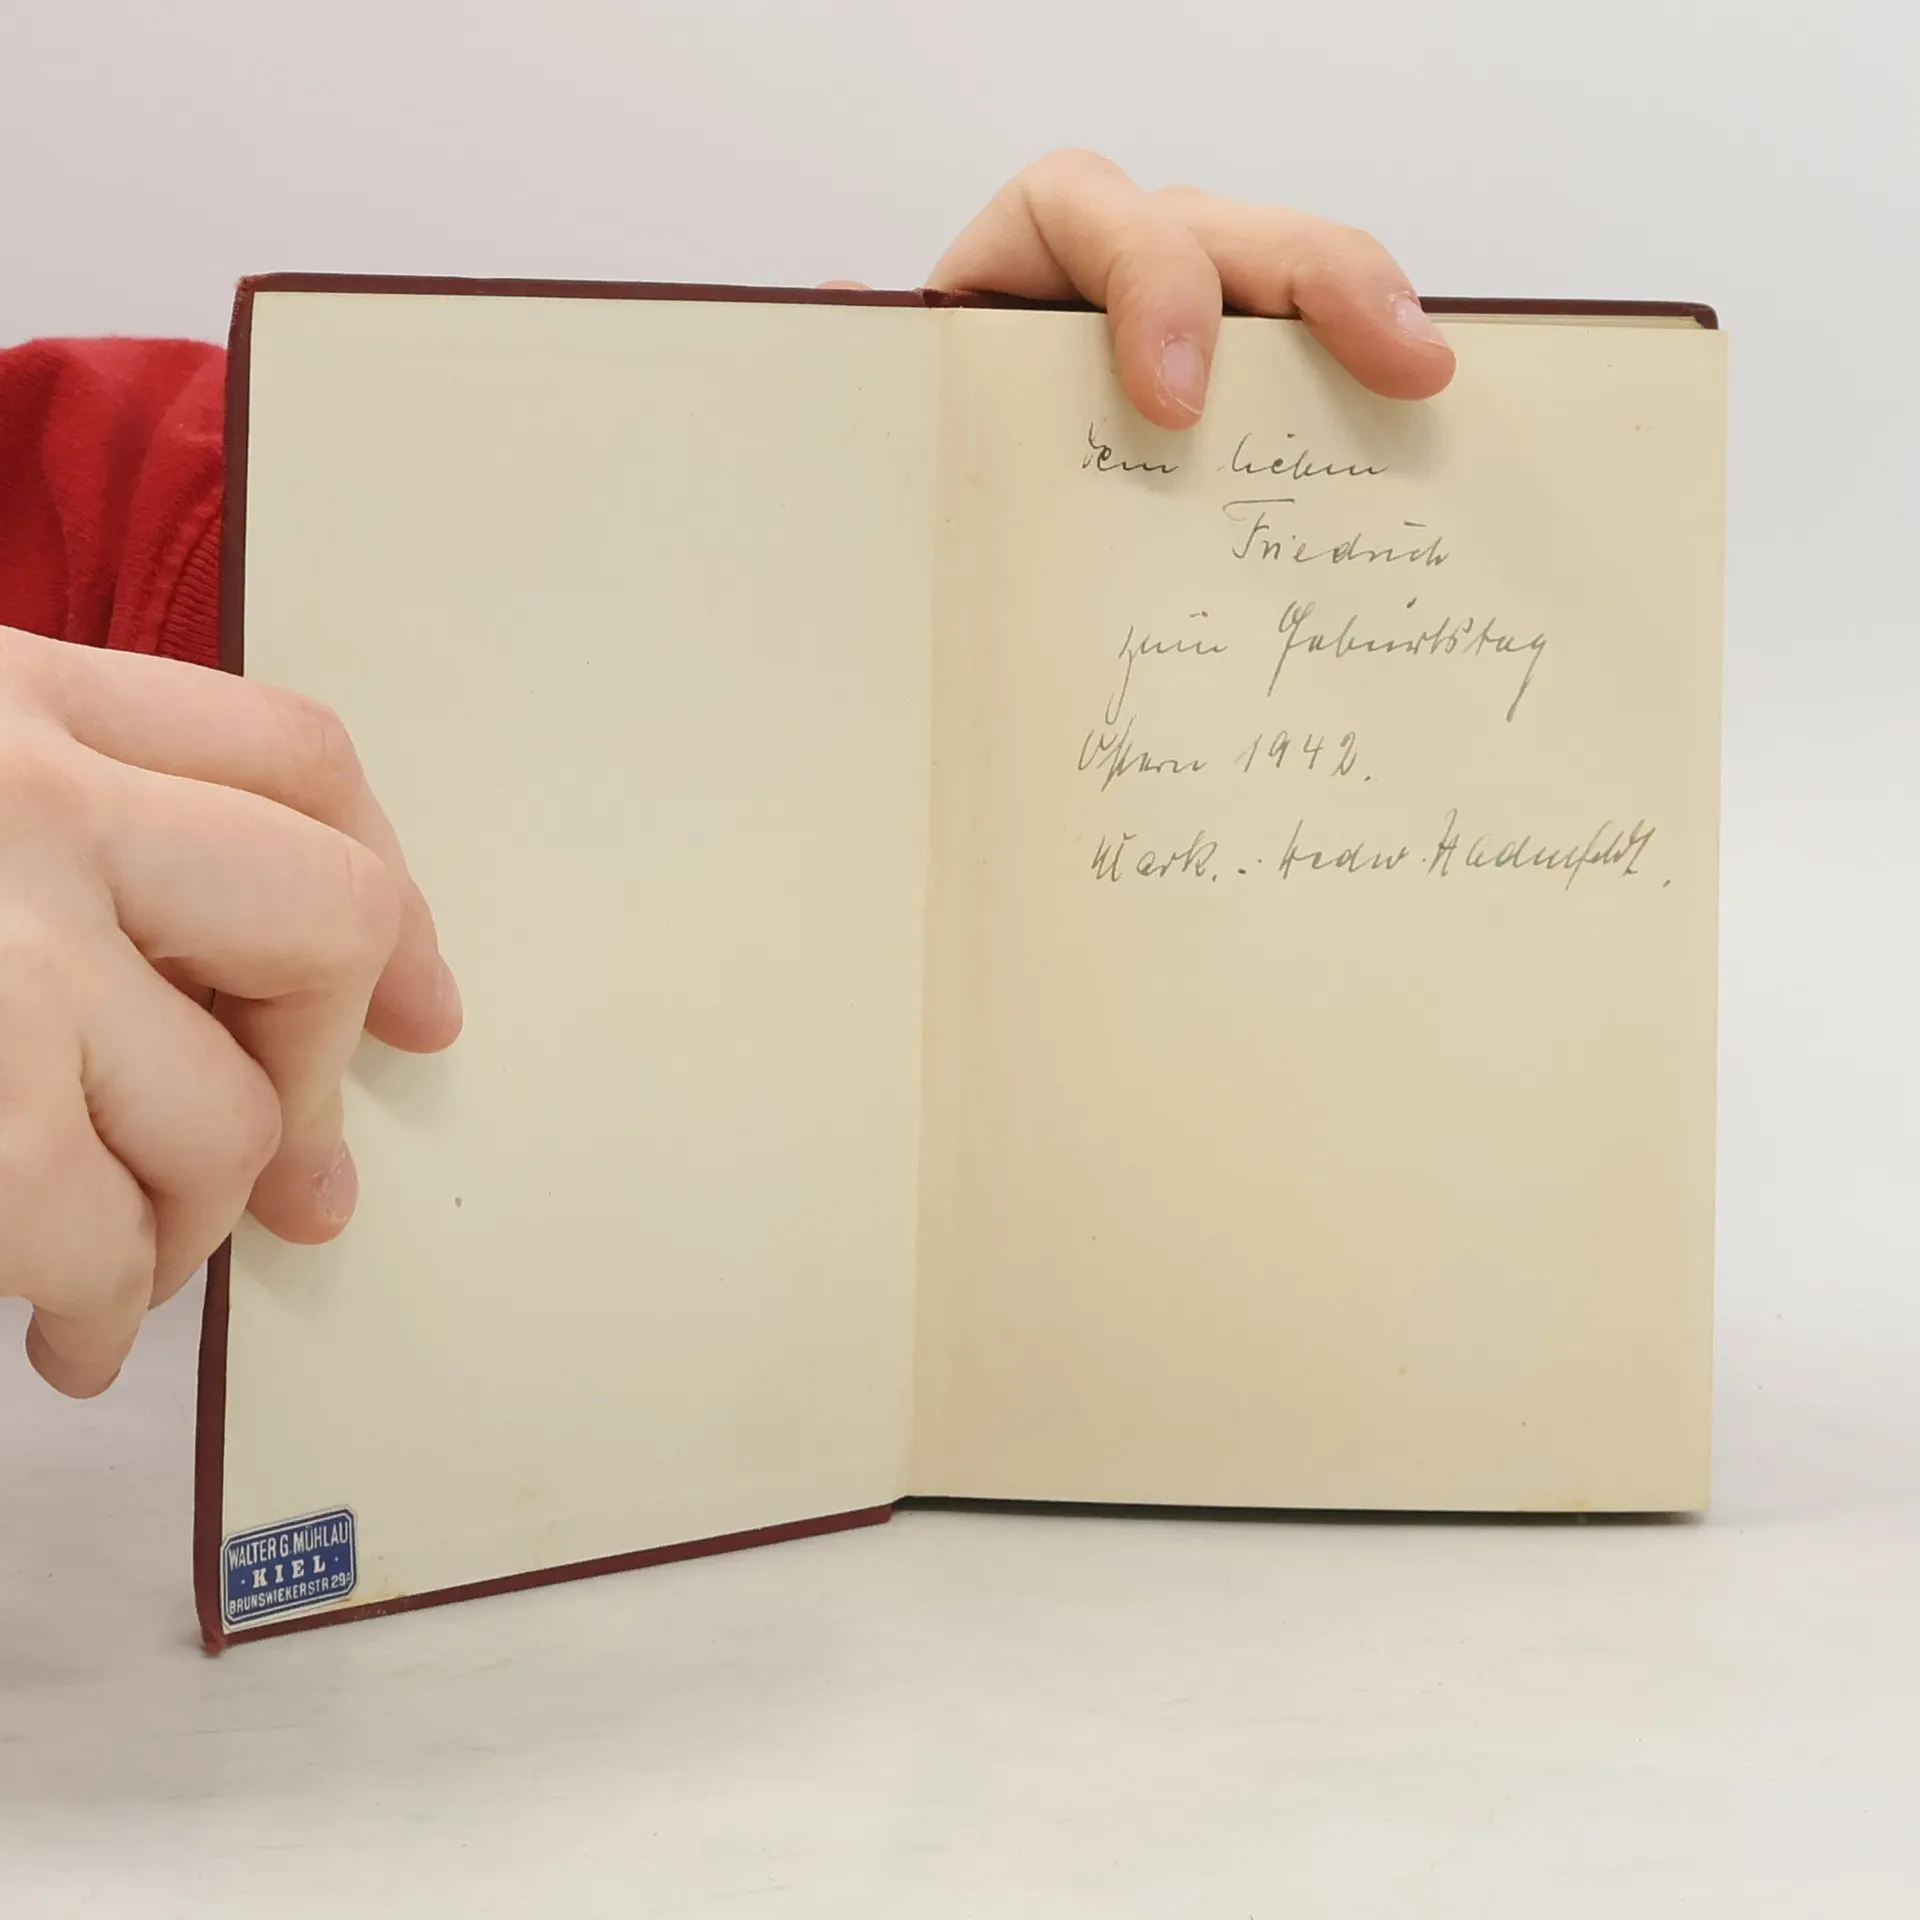 WALTER G. MÜHLAU
· KIEL ·
BRUNSWIEKERSTR 29a
Dem lieben
Friedrich
zum Geburtstag
Ostern 1942.